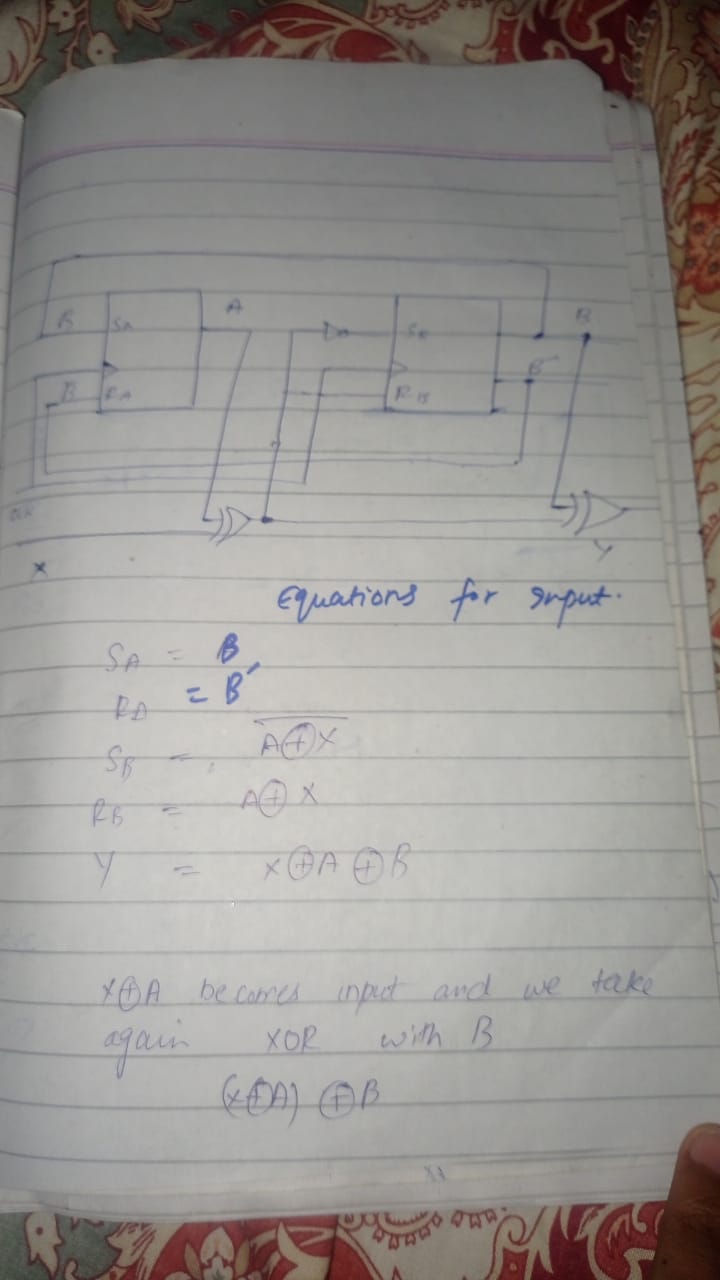 B SA A SB B
B'
B RA RB
X
Y
Equations for Input.
SA = B
RA = B'
SB = \overline{A⊕X}
RB = A⊕X
Y = X⊕A⊕B
X⊕A becomes input and we take
again XOR with B
(X⊕A) ⊕B